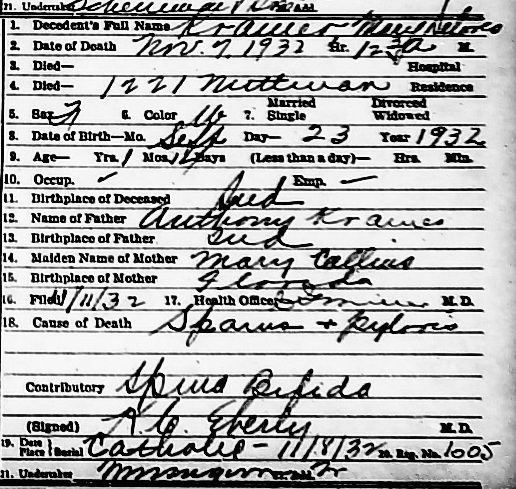 21. Undertaker
1. Decedent's Full Name Kramer Mary Delores
2. Date of Death Nov. 7, 1932 Hr. 12 A M.
3. Died— Hospital
4. Died— 1221 Residence
5. Sex F 6. Color W 7. Married Single Divorced Widowed
8. Date of Birth—Mo. Sept Day— 23 Year 1932
9. Age— Yrs. 1 Mos. 14 Days (Less than a day)— Hrs. Min.
10. Occup. ✓ Emp. ✓
11. Birthplace of Deceased Ind
12. Name of Father Anthony Kramer
13. Birthplace of Father Ind
14. Maiden Name of Mother Mary Collins
15. Birthplace of Mother Florida
16. Filed 11/11/32 17. Health Officer M. D.
18. Cause of Death Spasms + Pyloris
Contributory Spina Bifida
(Signed) A. C. Eberly M. D.
19. Date Place Burial Catholic - 11/8/32 20. Reg. No. 1005
21. Undertaker